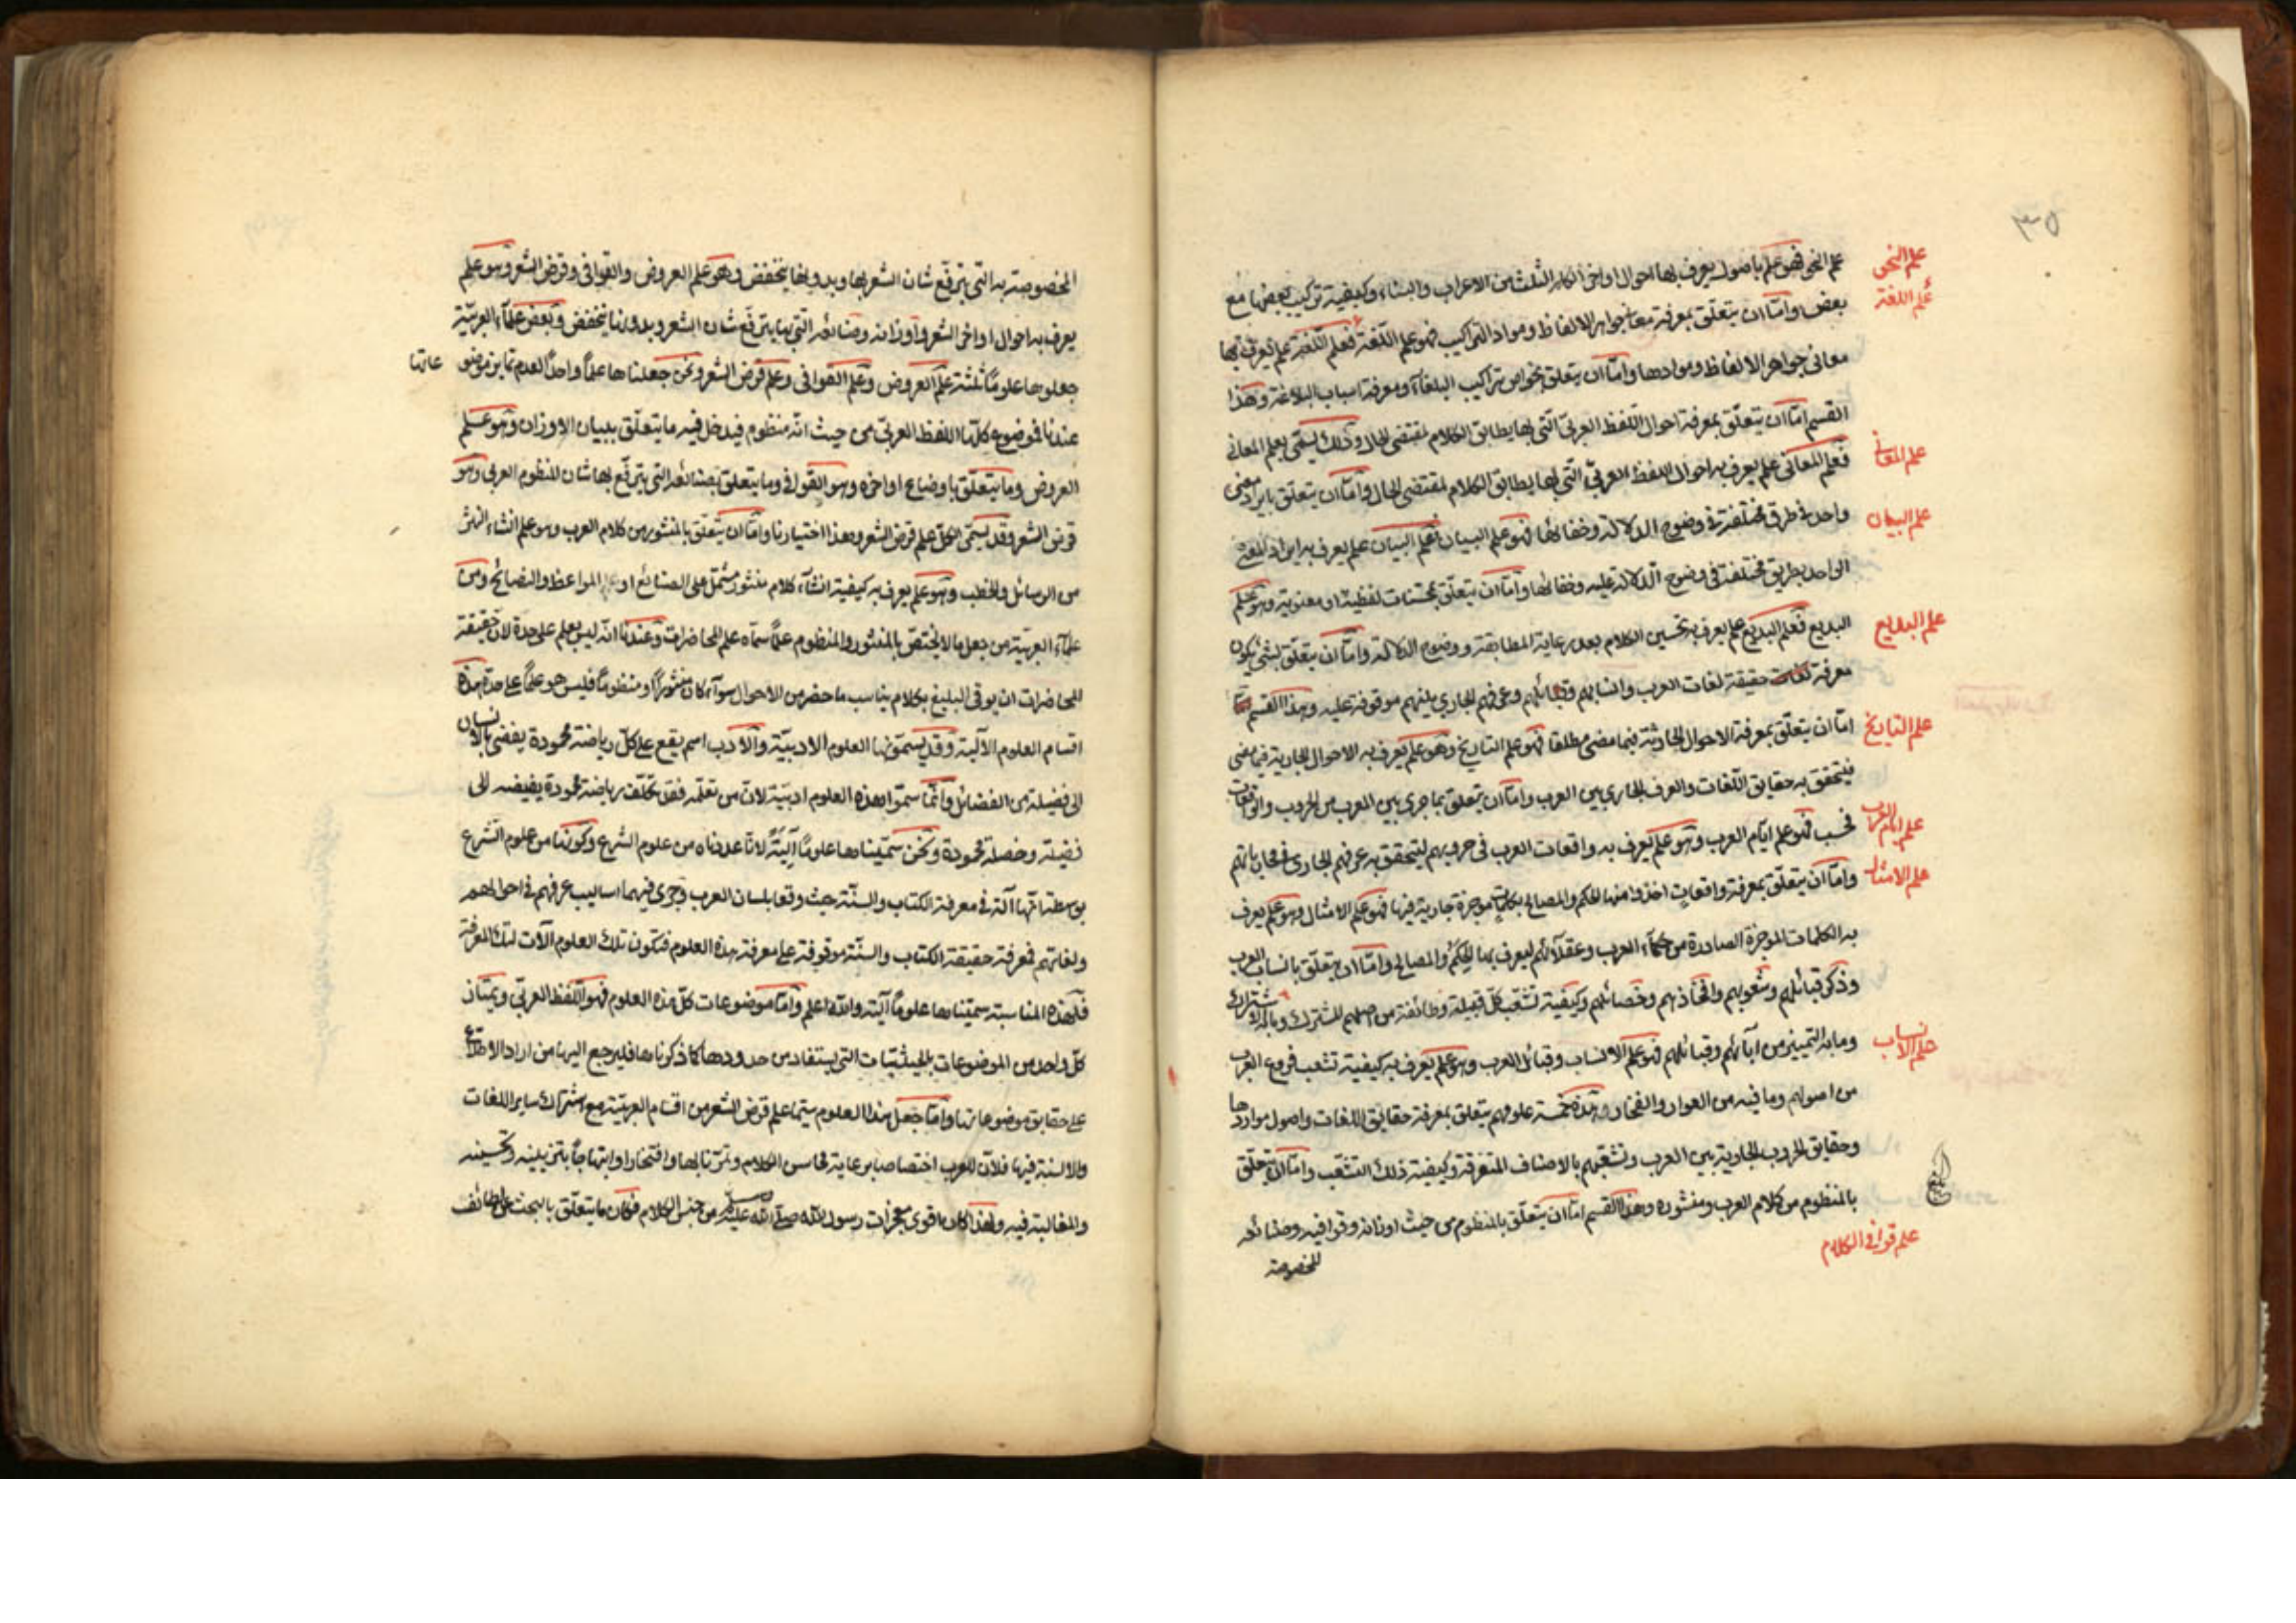 ٣٥
علم النحو
علم النحو فهو علم باصول يعرف بها احوال اواخر الكلم الثلث من الاعراب والبناء وكيفية تركيب بعضها مع
علم اللغة
بعض واما ان يتعلق بمعرفة معانى جواهر الالفاظ ومواد التراكيب فهو علم اللغة فعلم اللغة علم يعرف بها
معانى جواهر الالفاظ وموادها واما ان يتعلق بخواص تراكيب البلغاء ومعرفة اسباب البلاغة وهذا
القسم اما ان يتعلق بمعرفة احوال اللفظ العربى التى بها يطابق الكلام لمقتضى الحال وذلك يسمى بعلم المعانى
علم المعانى
فعلم المعانى علم يعرف به احوال اللفظ العربى التى بها يطابق الكلام لمقتضى الحال واما ان يتعلق بايراد معنى
علم البيان
واحد فى طرق مختلفة فى وضوح الدلالة وخفائها فهو علم البيان فعلم البيان علم يعرف به ايراد المعنى
الواحد بطريق مختلفة فى وضوح الدلالة عليه وخفائها واما ان يتعلق بمحسنات لفظية او معنوية وهو علم
علم البديع
البديع فعلم البديع علم يعرف به تحسين الكلام بعد رعاية المطابقة ووضوح الدلالة واما ان يتعلق بشئ يكون
معرفة حقيقة لغات العرب وانسابهم وقبائلهم وعرفهم الجارى بينهم موقوفة عليه وهذا القسم
علم التاريخ
اما ان يتعلق بمعرفة الاحوال الحادثة فيما مضى مطلقا فهو علم التاريخ وهو علم يعرف به الاحوال الجارية فيما مضى
فيتحقق به حقايق اللغات والعرف الجارى بين العرب واما ان يتعلق بما جرى بين العرب من الحروب والواقعات
علم ايام العرب
فحسب فهو علم ايام العرب وهو علم يعرف به واقعات العرب فى حروبهم ليتحقق به عرفهم الجارى فى محاوراتهم
علم الامثال
واما ان يتعلق بمعرفة واقعات اخذوا منها الحكم والمصالح بكلمات موجزة جارية فيها فهو علم الامثال وهو علم يعرف
به الكلمات الموجزة الصادرة من حكماء العرب وعقلائهم ليعرف بها الحكم والمصالح واما ان يتعلق بانساب العرب
وذكر قبائلهم وشعوبهم وافخاذهم وفصائلهم وكيفية تشعب كل قبيلة وطائفة من اصلهم المشترك وما به الاشتراك
علم الانساب
وما به التمييز من آبائهم وقبائلهم فهو علم الانساب وقبائل العرب وهو علم يعرف به كيفية تشعب فروع العرب
من اصولهم وما فيه من العوار والفخار وهذه خمسة علوم يتعلق بمعرفة حقايق اللغات واصول مواردها
وحقايق الحروب الجارية بين العرب وتشعبهم بالاصناف المتفرقة وكيفية ذلك التشعب واما ان يتعلق
بالمنظوم من كلام العرب ومنثوره وهذا القسم اما ان يتعلق بالمنظوم من حيث اوزانه وقوافيه وصنائعه
علم قوافى الكلام
المخصوصة
المخصوصة به التى يترفع شان الشعر بها وبدونها ينخفض وهو علم العروض والقوافى وقرض الشعر وهو علم
يعرف به احوال اواخر الشعر واوزانه وصنائعه التى بها يترفع شان الشعر وبدونها ينخفض وبعض علماء العربية
جعلوها علوما ثلثة علم العروض وعلم القوافى وعلم قرض الشعر ونحن جعلناها علما واحدا لعدم تمايز موضو
عاتها
عندنا فموضوع كلها اللفظ العربى من حيث انه منظوم فيدخل فيه ما يتعلق ببيان الاوزان وهو علم
العروض وما يتعلق باوضاع اواخره وهو القوافى وما يتعلق بصنائعه التى يترفع بها شان المنظوم العربى وهو
قرض الشعر وقد يسمى الكل علم قرض الشعر وهذا اختيارنا واما ان يتعلق بالمنثور من كلام العرب وهو علم انشاء النثر
من الرسائل والخطب وهو علم يعرف به كيفية انشاء كلام منثور مشتمل على الصنائع او على المواعظ والنصائح ومن
علماء العربية من جعل ما لا يختص بالمنثور والمنظوم علما سماه علم المحاضرات وعندنا انه ليس بعلم على حدة لان حقيقة
المحاضرات ان يوفى البليغ بكلام يناسب ما حضر من الاحوال سواء كان منثورا او منظوما فليس هو علما على حدة هذه
اقسام العلوم الآلية وقد يسمونها العلوم الادبية والادب اسم يقع على كل رياضة محمودة يفضى بالانسان
الى فضيلة من الفضائل وانما سموا هذه العلوم ادبية لان من تعلمه فقد تكلف برياضة محمودة يفيضه الى
فضيلة وخصلة محمودة ونحن سميناها علوما آلية لانا عددناه من علوم الشرع وكونها من علوم الشرع
بوسطة انها آلة فى معرفة الكتاب والسنة حيث وقعا بلسان العرب وجرى فيهما اساليب عرفهم فى احوالهم
ولغاتهم فمعرفة حقيقة الكتاب والسنة موقوفة على معرفة هذه العلوم فتكون تلك العلوم آلات لتلك المعرفة
فلهذه المناسبة سميناها علوما آلية والله اعلم واما موضوعات كل هذه العلوم فهو اللفظ العربى ويمتاز
كل واحد من الموضوعات بالحيثيات التى يستفاد من حدودها كما ذكرناها فليرجع اليها من اراد الاطلاع
على حقايق موضوعاتها واما جعل هذا العلوم سيما علم قرض الشعر من اقسام العربية مع اشتراك ساير اللغات
والالسنة فيها فلان للعرب اختصاصا برعاية محاسن الكلام وتمرنا بها وافتخارا وابتهاجا بتزيينه وتحسينه
والمغالبة فيه ولهذا كان اقوى معجزات رسول الله صلى الله عليه وسلم من جنس الكلام فكان ما يتعلق بالبحث على لطائف